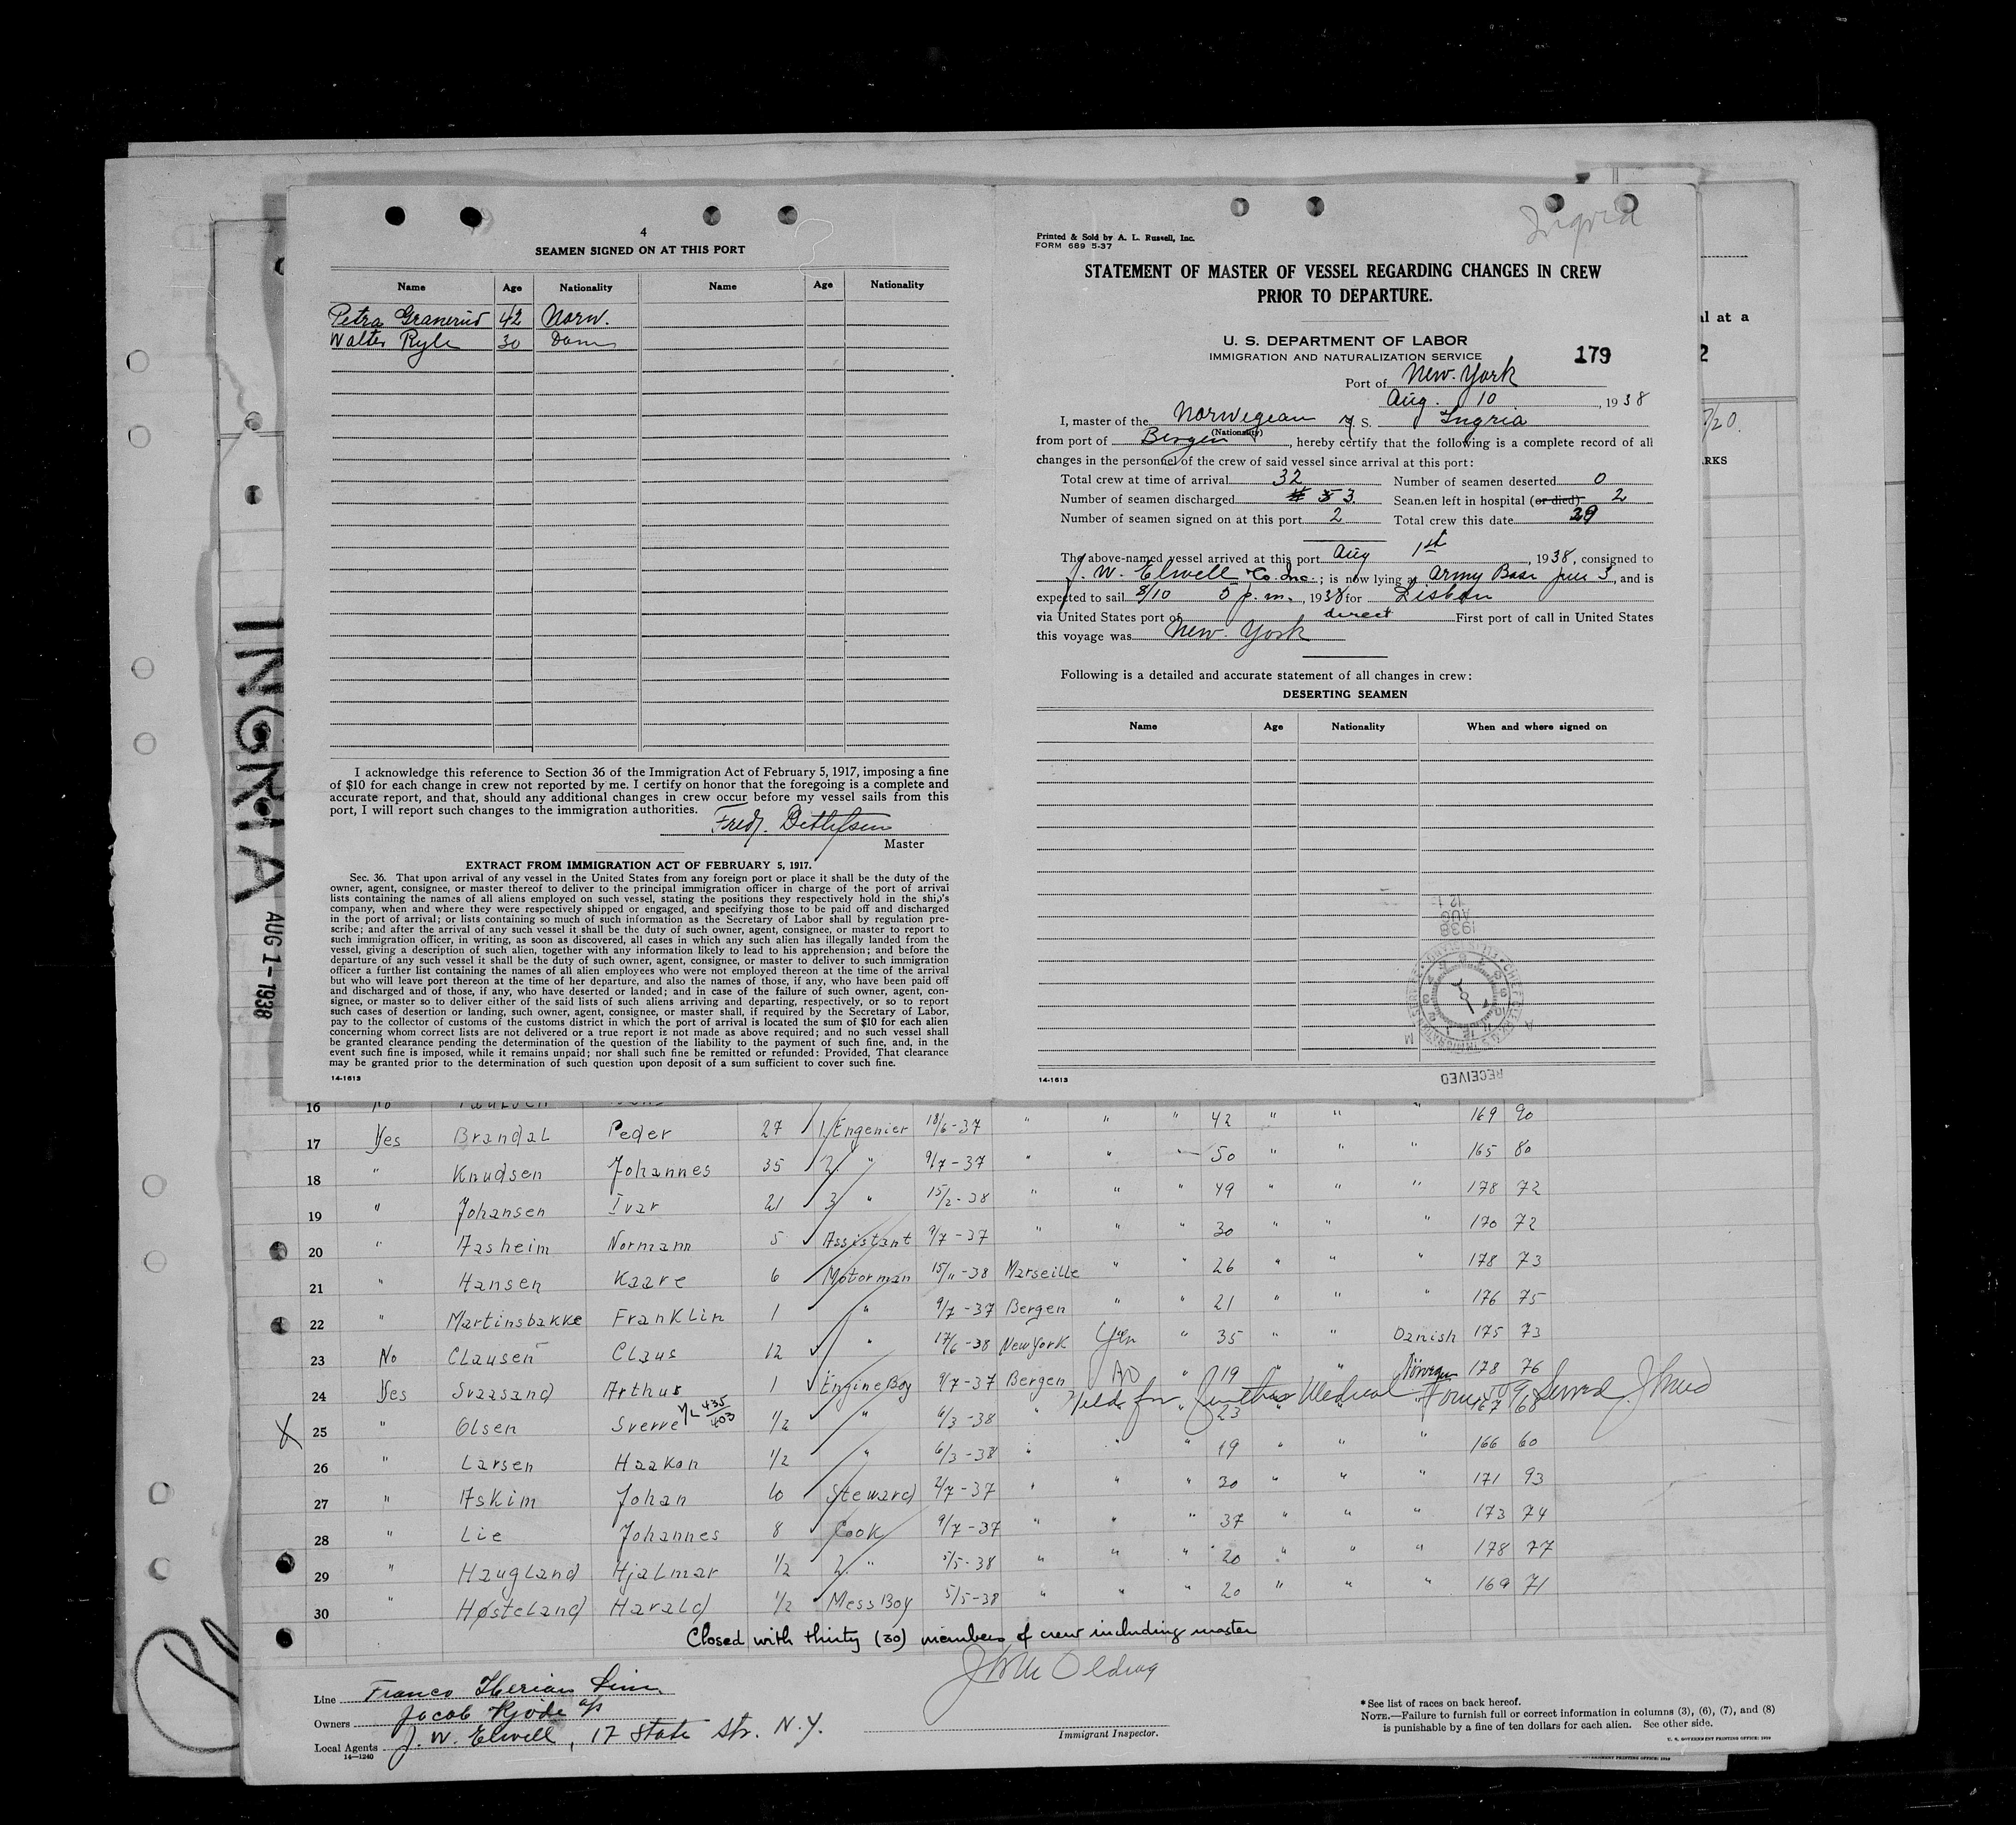 4
SEAMEN SIGNED ON AT THIS PORT
Name Age Nationality Name Age Nationality
Petra Granerud 42 Norw.
Walter Ryle 30 Dan
I acknowledge this reference to Section 36 of the Immigration Act of February 5, 1917, imposing a fine
of $10 for each change in crew not reported by me. I certify on honor that the foregoing is a complete and
accurate report, and that, should any additional changes in crew occur before my vessel sails from this
port, I will report such changes to the immigration authorities.
Fredr. Detlefsen
Master
EXTRACT FROM IMMIGRATION ACT OF FEBRUARY 5, 1917.
Sec. 36. That upon arrival of any vessel in the United States from any foreign port or place it shall be the duty of the
owner, agent, consignee, or master thereof to deliver to the principal immigration officer in charge of the port of arrival
lists containing the names of all aliens employed on such vessel, stating the positions they respectively hold in the ship's
company, when and where they were respectively shipped or engaged, and specifying those to be paid off and discharged
in the port of arrival; or lists containing so much of such information as the Secretary of Labor shall by regulation pre-
scribe; and after the arrival of any such vessel it shall be the duty of such owner, agent, consignee, or master to report to
such immigration officer, in writing, as soon as discovered, all cases in which any such alien has illegally landed from the
vessel, giving a description of such alien, together with any information likely to lead to his apprehension; and before the
departure of any such vessel it shall be the duty of such owner, agent, consignee, or master to deliver to such immigration
officer a further list containing the names of all alien employees who were not employed thereon at the time of the arrival
but who will leave port thereon at the time of her departure, and also the names of those, if any, who have been paid off
and discharged and of those, if any, who have deserted or landed; and in case of the failure of such owner, agent, con-
signee, or master so to deliver either of the said lists of such aliens arriving and departing, respectively, or so to report
such cases of desertion or landing, such owner, agent, consignee, or master shall, if required by the Secretary of Labor,
pay to the collector of customs of the customs district in which the port of arrival is located the sum of $10 for each alien
concerning whom correct lists are not delivered or a true report is not made as above required; and no such vessel shall
be granted clearance pending the determination of the question of the liability to the payment of such fine, and, in the
event such fine is imposed, while it remains unpaid; nor shall such fine be remitted or refunded: Provided, That clearance
may be granted prior to the determination of such question upon deposit of a sum sufficient to cover such fine.
14-1613
Ingria
Printed & Sold by A. L. Russell, Inc.
FORM 689 5-37
STATEMENT OF MASTER OF VESSEL REGARDING CHANGES IN CREW
PRIOR TO DEPARTURE.
U. S. DEPARTMENT OF LABOR
IMMIGRATION AND NATURALIZATION SERVICE
179
Port of New-York
Aug. 10, 1938
I, master of the Norwegean M. S. Ingria
(Nationality)
from port of Bergen, hereby certify that the following is a complete record of all
changes in the personnel of the crew of said vessel since arrival at this port:
Total crew at time of arrival 32 Number of seamen deserted 0
Number of seamen discharged 3 Seamen left in hospital (or died) 2
Number of seamen signed on at this port 2 Total crew this date 29
The above-named vessel arrived at this port Aug 1st, 1938, consigned to
J. W. Elwell & Co. Inc.; is now lying at Army Base pier 3, and is
expected to sail 8/10 5 p.m., 1938 for Lisbon
via United States port of direct First port of call in United States
this voyage was New-York
Following is a detailed and accurate statement of all changes in crew:
DESERTING SEAMEN
Name Age Nationality When and where signed on
AUG
1938
RECEIVED
14-1613
al at a
2
/20.
RKS
INGRIA AUG 1-1938
16 No 169 90
17 Yes Brandal Peder 27 1 Engenier 18/6-37 " " " 42 " " " 165 80
18 " Knudsen Johannes 35 2 " 9/7-37 " " " 50 " " " 178 72
19 " Johansen Ivar 21 3 " 15/2-38 " " " 49 " " " 170 72
20 " Aasheim Normann 5 Assistant 9/7-37 " " " 30 " " " 178 73
21 " Hansen Kaare 6 Motorman 15/11-38 Marseille " " 26 " " " 176 75
22 " Martinsbakke Franklin 1 " 9/7-37 Bergen " " 21 " " " 175 73
23 No Clausen Claus 12 " 17/6-38 New York " 35 " " Danish 178 76
24 Yes Svaasand Arthur 1 Engine Boy 9/7-37 Bergen " 19 " "
Held for further Medical Form 509 Served
25 " Olsen Sverre 435/403 1/2 " 6/3-38 " " 23 167 68
26 " Larsen Haakon 1/2 " 6/3-38 " " " 19 " " " 166 60
27 " Askim Johan 10 Steward 2/7-37 " " " 30 " " " 171 93
28 " Lie Johannes 8 Cook 9/7-37 " " " 37 " " " 173 74
29 " Haugland Hjalmar 1/2 2 " 5/5-38 " " " 20 " " " 178 77
30 " Høsteland Harald 1/2 Mess Boy 5/5-38 " " " 20 " " " 169 71
Closed with thirty (30) members of crew including master
Line Franco Iberian Line
Owners Jacob Kjøde a/s
Local Agents J. W. Elwell, 17 State Str. N.Y.
14-1240
Immigrant Inspector.
*See list of races on back hereof.
NOTE.—Failure to furnish full or correct information in columns (3), (6), (7), and (8)
is punishable by a fine of ten dollars for each alien. See other side.
U. S. GOVERNMENT PRINTING OFFICE: